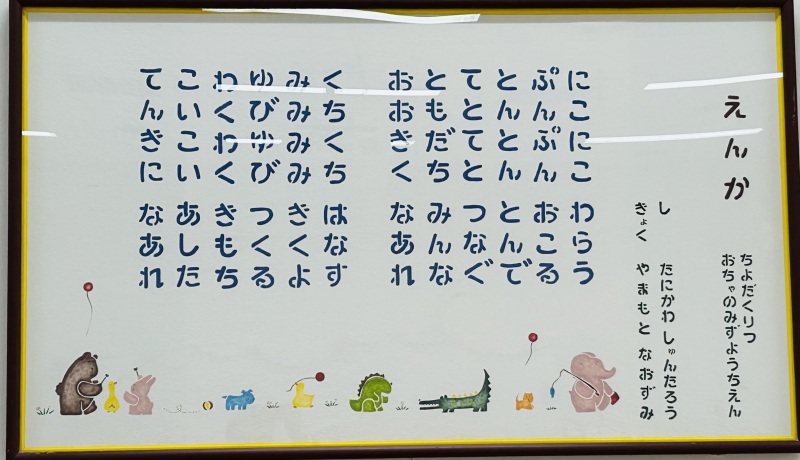 えんか
ちよだくりつ
おちゃのみずようちえん
し　たにかわ しゅんたろう
きょく　やまもと なおずみ
にこにこ　わらう
ぷんぷん　おこる
とんとん　とんで
てとてと　つなぐ
ともだち　みんな
おおきく　なあれ
くちくち　はなす
みみみみ　きくよ
ゆびゆび　つくる
わくわく　きもち
こいこい　あした
てんきに　なあれ